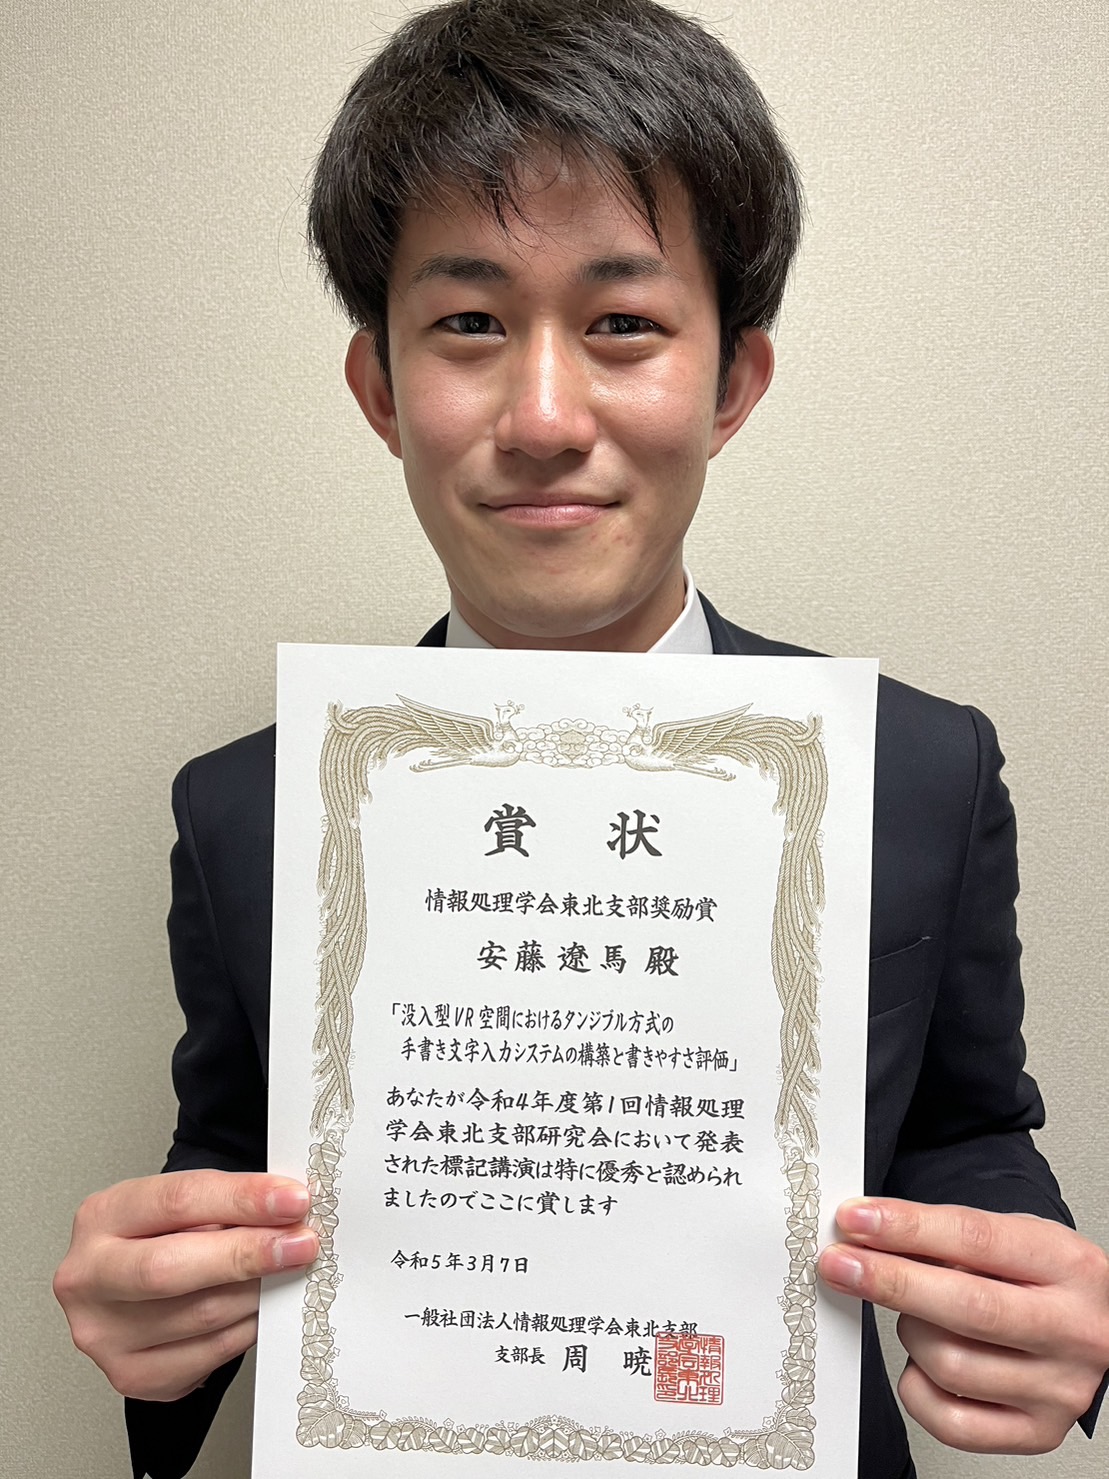 賞 状
情報処理学会東北支部奨励賞
安藤遼馬 殿
「没入型VR空間におけるタンジブル方式の
手書き文字入力システムの構築と書きやすさ評価」
あなたが令和4年度第1回情報処理
学会東北支部研究会において発表
された標記講演は特に優秀と認められ
ましたのでここに賞します
令和5年3月7日
一般社団法人情報処理学会東北支部
支部長 周 暁